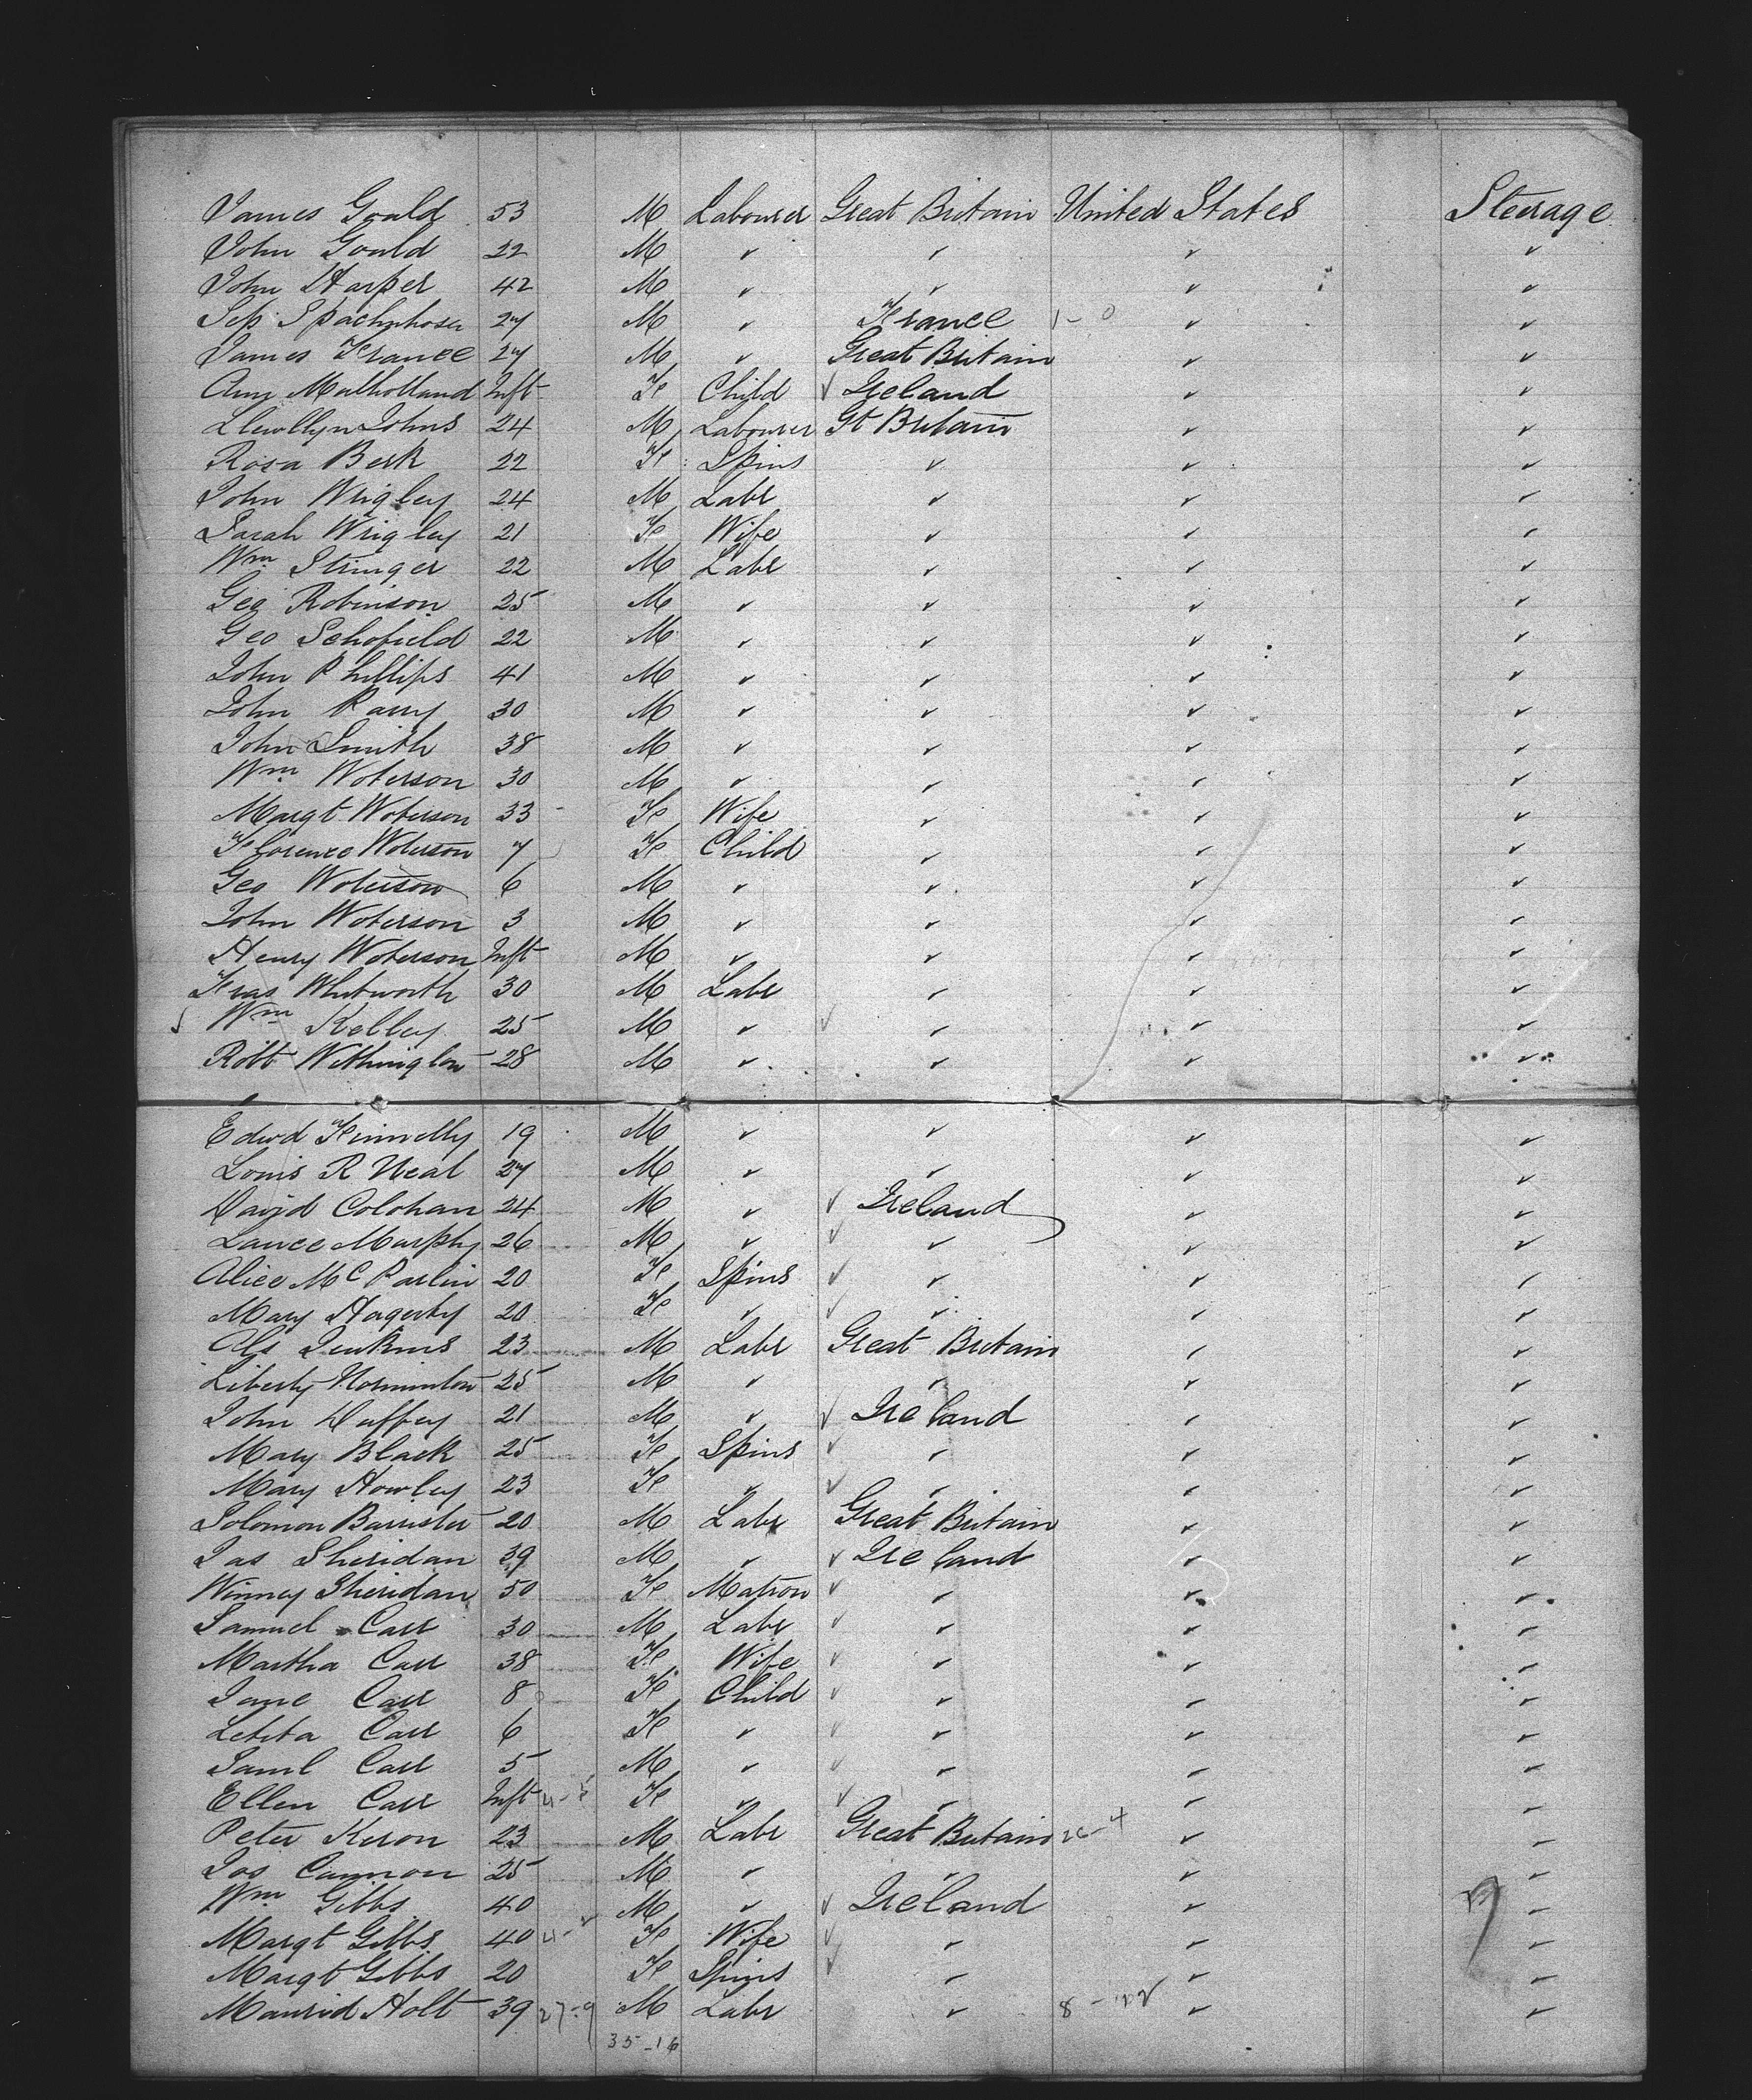 James Gould 53 M Labourer Great Britain United States Steerage
John Gould 22 M ✓ ✓ ✓ ✓
John Harper 42 M ✓ ✓ ✓ ✓
Sep 27 M ✓ France 1-0 ✓ ✓
James France 27 M ✓ Great Britain ✓ ✓
Ann Mulholland Inft F Child ✓ Ireland ✓ ✓
Llewllyn Johns 24 M Labourer Gt Britain ✓ ✓
Rosa Berk 22 F Spins ✓ ✓ ✓
John Wrigley 24 M Labr ✓ ✓ ✓
Sarah Wrigley 21 F Wife ✓ ✓ ✓
Wm Stringer 22 M Labr ✓ ✓ ✓
Geo Robinson 25 M ✓ ✓ ✓ ✓
Geo Schofield 22 M ✓ ✓ ✓ ✓
John Phillips 41 M ✓ ✓ ✓ ✓
John Parry 30 M ✓ ✓ ✓ ✓
John Smith 38 M ✓ ✓ ✓ ✓
Wm Woterson 30 M ✓ ✓ ✓ ✓
Margt Woterson 33 F Wife ✓ ✓ ✓
Florence Woterson 7 F Child ✓ ✓ ✓
Geo Woterson 6 M ✓ ✓ ✓ ✓
John Woterson 3 M ✓ ✓ ✓ ✓
Henry Woterson Inft M ✓ ✓ ✓ ✓
Fras Whitworth 30 M Labr ✓ ✓ ✓
Wm Kelley 25 M ✓ ✓ ✓ ✓ ✓
Robt Withington 28 M ✓ ✓ ✓ ✓
Edwd Finnelly 19 M ✓ ✓ ✓ ✓
Louis R Neal 27 M ✓ ✓ ✓ ✓
David Colohan 24 M ✓ ✓ Ireland ✓ ✓
Lance Murphy 26 M ✓ ✓ ✓ ✓ ✓
Alice McParlin 20 F Spins ✓ ✓ ✓ ✓
Mary Hagerty 20 F ✓ ✓ ✓ ✓ ✓
Jenkins 23 M Labr Great Britain ✓ ✓
Liberty Norminton 25 M ✓ ✓ ✓ ✓
John Duffey 21 M ✓ ✓ Ireland ✓ ✓
Mary Black 25 F Spins ✓ ✓ ✓ ✓
Mary Howley 23 F ✓ ✓ ✓ ✓ ✓
Solomon Barrister 20 M Labr Great Britain ✓ ✓
Jas Sheridan 39 M ✓ ✓ Ireland ✓ ✓
Winney Sheridan 50 F Matron ✓ ✓ ✓ ✓
Samuel Carr 30 M Labr ✓ ✓ ✓ ✓
Martha Carr 38 F Wife ✓ ✓ ✓ ✓
Jane Carr 8 F Child ✓ ✓ ✓ ✓
Letita Carr 6 F ✓ ✓ ✓ ✓ ✓
Saml Carr 5 M ✓ ✓ ✓ ✓ ✓
Ellen Carr Inft F ✓ ✓ ✓ ✓ ✓
Peter Keron 23 M Labr Great Britain 26-4 ✓ ✓
Jas Cannon 25 M ✓ ✓ ✓ ✓
Wm Gibbs 40 M ✓ ✓ Ireland ✓ ✓
Margt Gibbs 40 F Wife ✓ ✓ ✓ ✓
Margt Gibbs 20 F Spins ✓ ✓ ✓ ✓
Holt 39 27-9 M Labr ✓ ✓ ✓
35-16